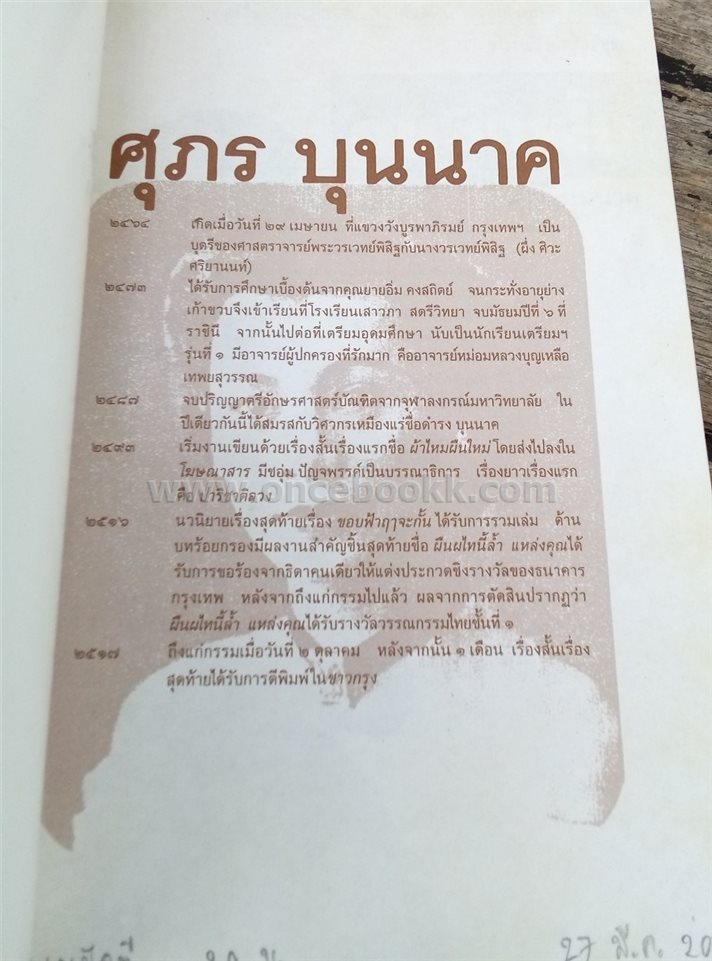 ศุภร บุนนาค
๒๔๖๔ เกิดเมื่อวันที่ ๒๙ เมษายน ที่แขวงวังบูรพาภิรมย์ กรุงเทพฯ เป็น
บุตรีของศาสตราจารย์พระวรเวทย์พิสิฐกับนางวรเวทย์พิสิฐ (ผึ่ง ศิวะ
ศริยานนท์)
๒๔๗๓ ได้รับการศึกษาเบื้องต้นจากคุณยายอิ่ม คงสถิตย์ จนกระทั่งอายุย่าง
เก้าขวบจึงเข้าเรียนที่โรงเรียนเสาวภา สตรีวิทยา จบมัธยมปีที่ ๖ ที่
ราชินี จากนั้นไปต่อที่เตรียมอุดมศึกษา นับเป็นนักเรียนเตรียมฯ
รุ่นที่ ๑ มีอาจารย์ผู้ปกครองที่รักมาก คืออาจารย์หม่อมหลวงบุญเหลือ
เทพยสุวรรณ
๒๔๘๗ จบปริญญาตรีอักษรศาสตร์บัณฑิตจากจุฬาลงกรณ์มหาวิทยาลัย ใน
ปีเดียวกันนี้ได้สมรสกับวิศวกรเหมืองแร่ชื่อดำรง บุนนาค
๒๔๙๓ เริ่มงานเขียนด้วยเรื่องสั้นเรื่องแรกชื่อ ผ้าไหมผืนใหม่ โดยส่งไปลงใน
โฆษณาสาร มีชอุ่ม ปัญจพรรค์เป็นบรรณาธิการ เรื่องยาวเรื่องแรก
คือ ปาริชาติลวง
www.oncebookk.com
๒๕๑๖ นวนิยายเรื่องสุดท้ายเรื่อง ขอบฟ้าฤๅจะกั้น ได้รับการรวมเล่ม ด้าน
บทร้อยกรองมีผลงานสำคัญชิ้นสุดท้ายชื่อ ผืนผไทนี้ล้ำ แหล่งคุณได้
รับการขอร้องจากธิดาคนเดียวให้แต่งประกวดชิงรางวัลของธนาคาร
กรุงเทพ หลังจากถึงแก่กรรมไปแล้ว ผลจากการตัดสินปรากฏว่า
ผืนผไทนี้ล้ำ แหล่งคุณได้รับรางวัลวรรณกรรมไทยชั้นที่ ๑
๒๕๑๗ ถึงแก่กรรมเมื่อวันที่ ๒ ตุลาคม หลังจากนั้น ๑ เดือน เรื่องสั้นเรื่อง
สุดท้ายได้รับการตีพิมพ์ในชาวกรุง
27 มี.ค. 20